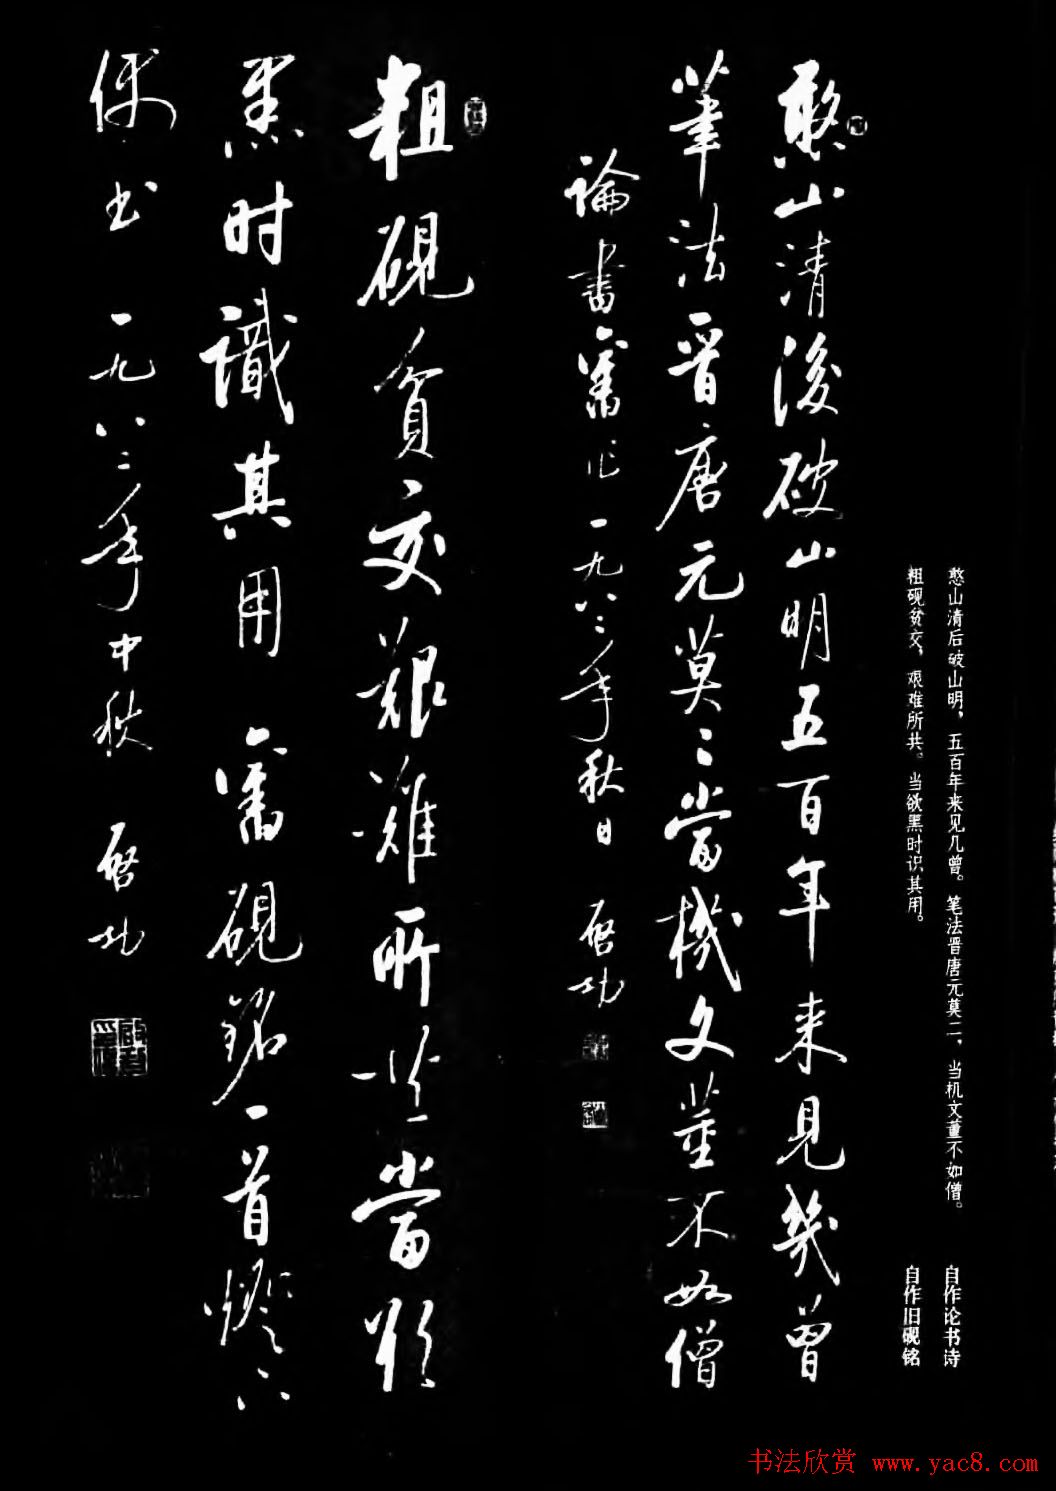 憨山清后破山明，五百年来见几曾。笔法晋唐元莫二，当机文董不如僧。 自作论书诗
粗砚贫交，艰难所共。当欲黑时识其用。 自作旧砚铭
憨山清後破山明五百年来見幾曾
筆法晋唐元莫二當機文董不如僧
論書舊作一九八二年秋日 啓功
粗硯貧交艱難所共當欲
黑时識其用 舊硯銘一首燈下
书 一九八二年中秋 啓功
书法欣赏 www.yac8.com